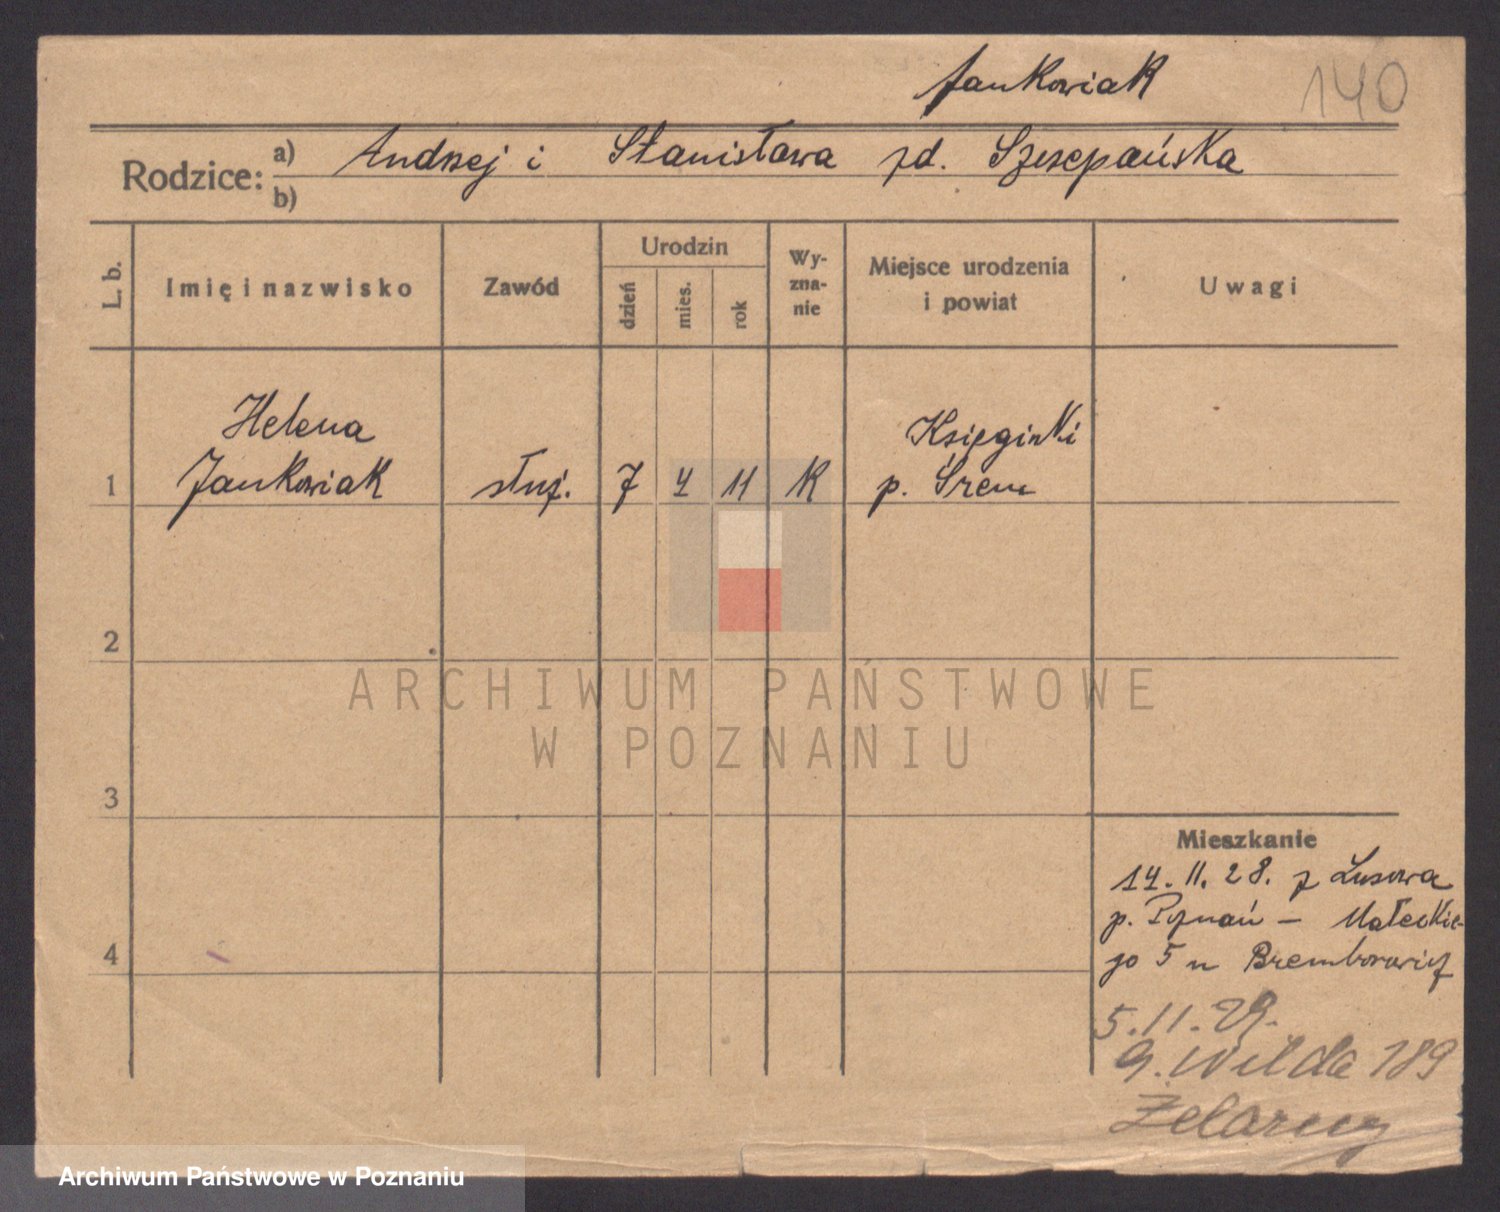 Jankowiak
140
Rodzice:
a) Andrzej i Stanisława zd. Szczepańska
b)
L. b.
Imię i nazwisko
Zawód
Urodzin
dzień
mies.
rok
Wy-
zna-
nie
Miejsce urodzenia
i powiat
Uwagi
Helena
Księginki
1 Jankowiak służ. 7 4 11 K p. Śrem
2
ARCHIWUM PAŃSTWOWE
W POZNANIU
3
Mieszkanie
14. 11. 28. z Lusowa
p. Poznań – Małeckie-
4
go 5 u Bremborowicz
5.11.29.
G. Wilda 189
Archiwum Państwowe w Poznaniu